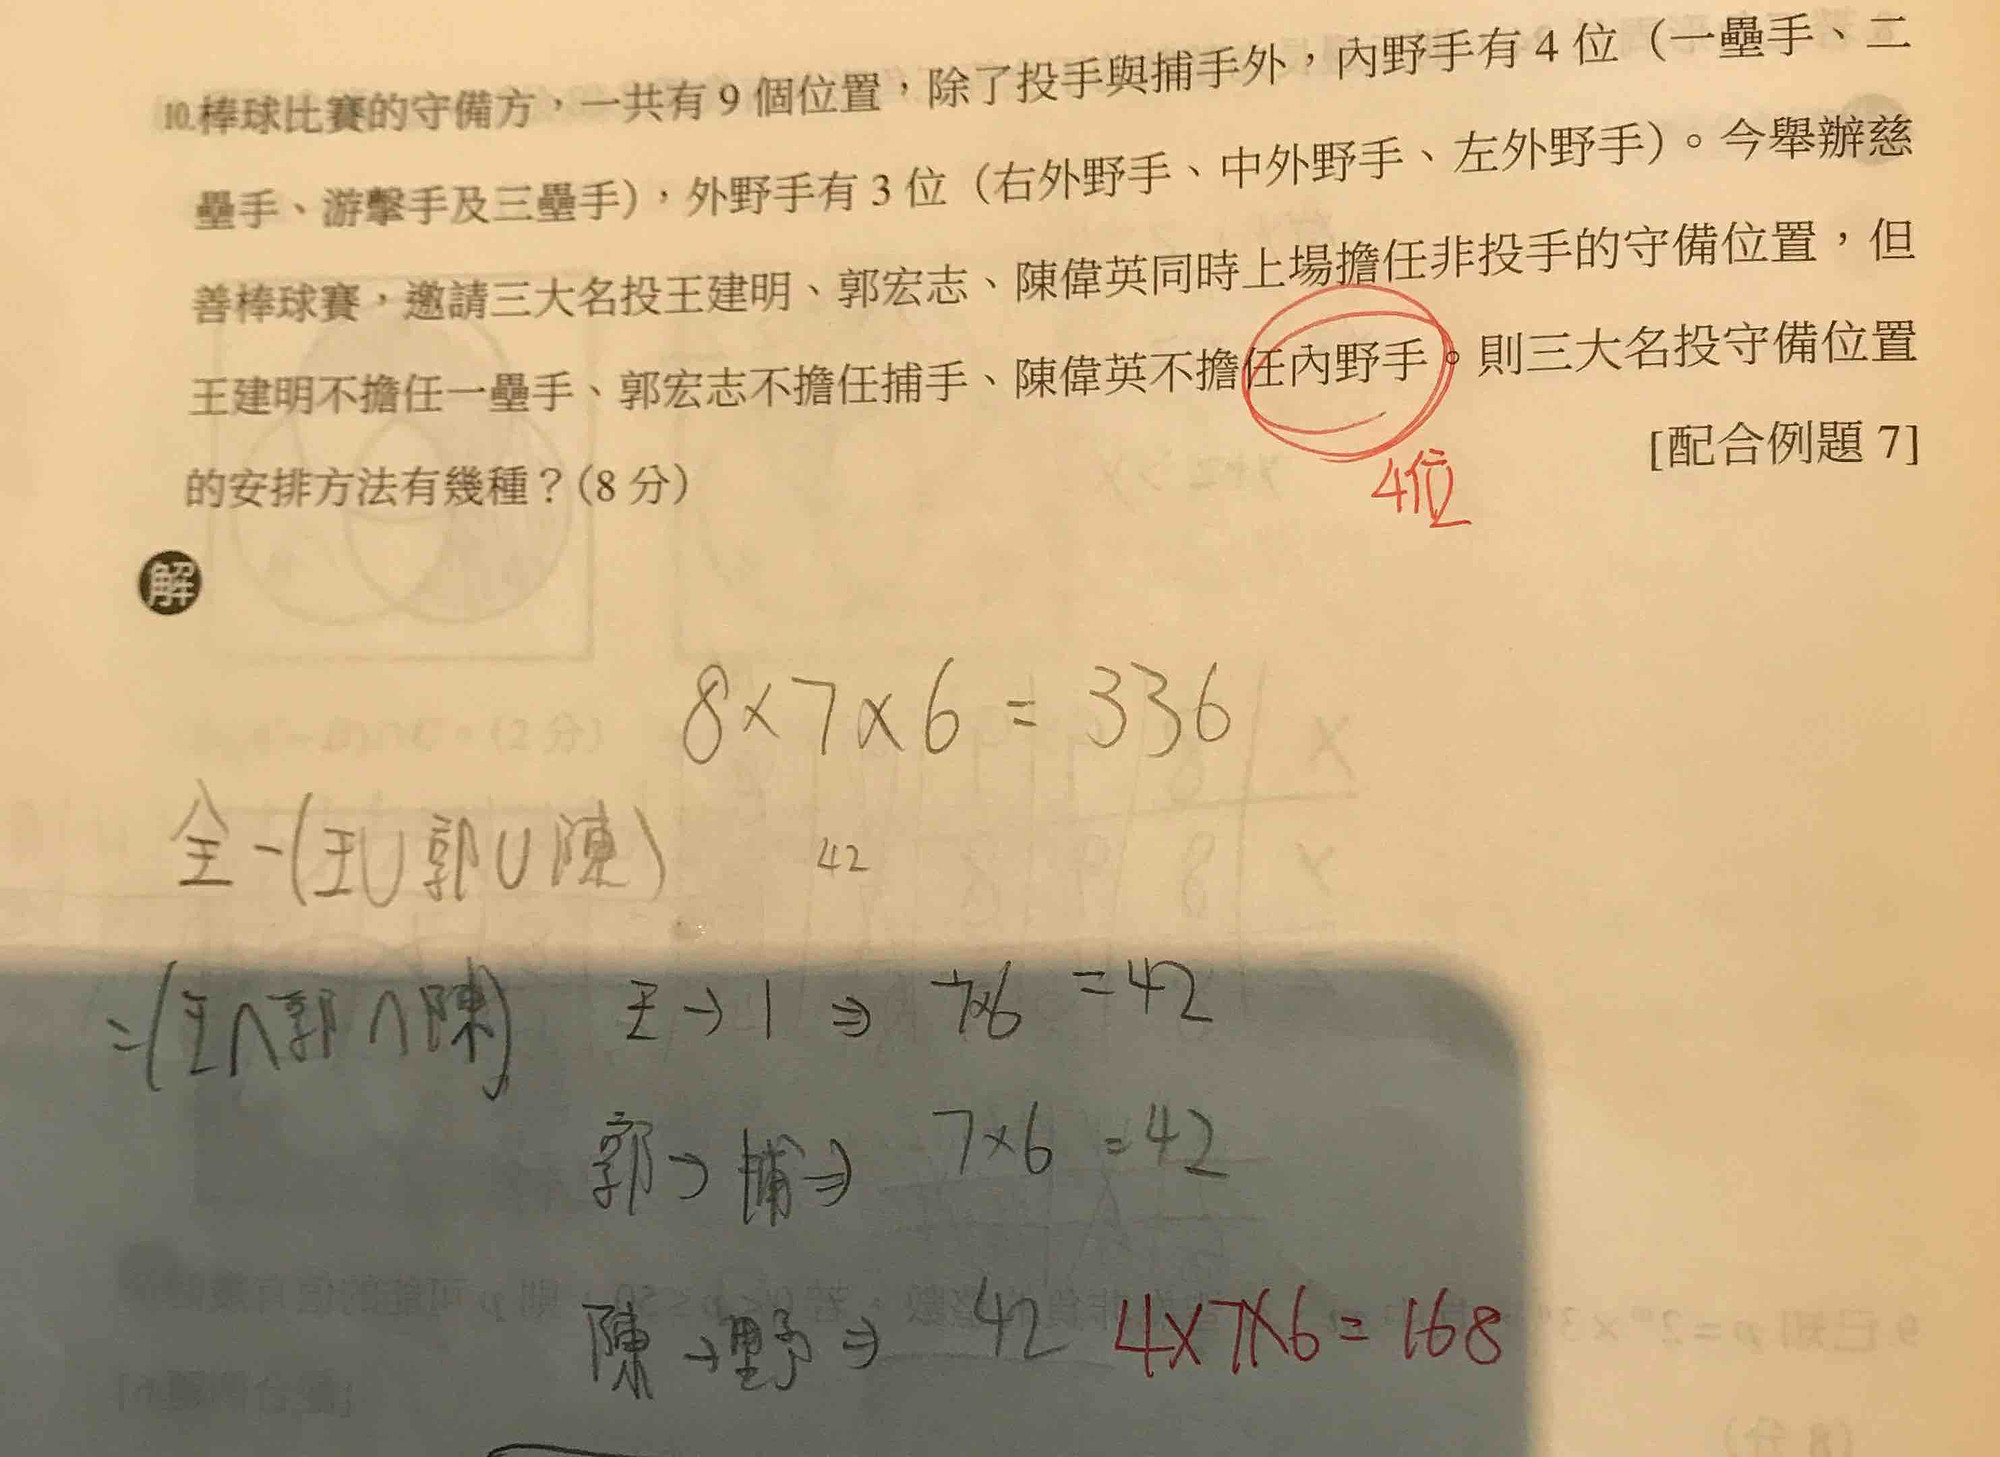 10.棒球比賽的守備方，一共有9個位置，除了投手與捕手外，內野手有4位（一壘手、二
壘手、游擊手及三壘手），外野手有3位（右外野手、中外野手、左外野手）。今舉辦慈
善棒球賽，邀請三大名投王建明、郭宏志、陳偉英同時上場擔任非投手的守備位置，但
王建明不擔任一壘手、郭宏志不擔任捕手、陳偉英不擔任內野手。則三大名投守備位置
的安排方法有幾種？（8分）
[配合例題7]
4位
解
8×7×6=336
全-(王∪郭∪陳)
42
=(王∩郭∩陳)
王→1⇒7×6=42
郭→捕⇒7×6=42
陳→野⇒42 4×7×6=168